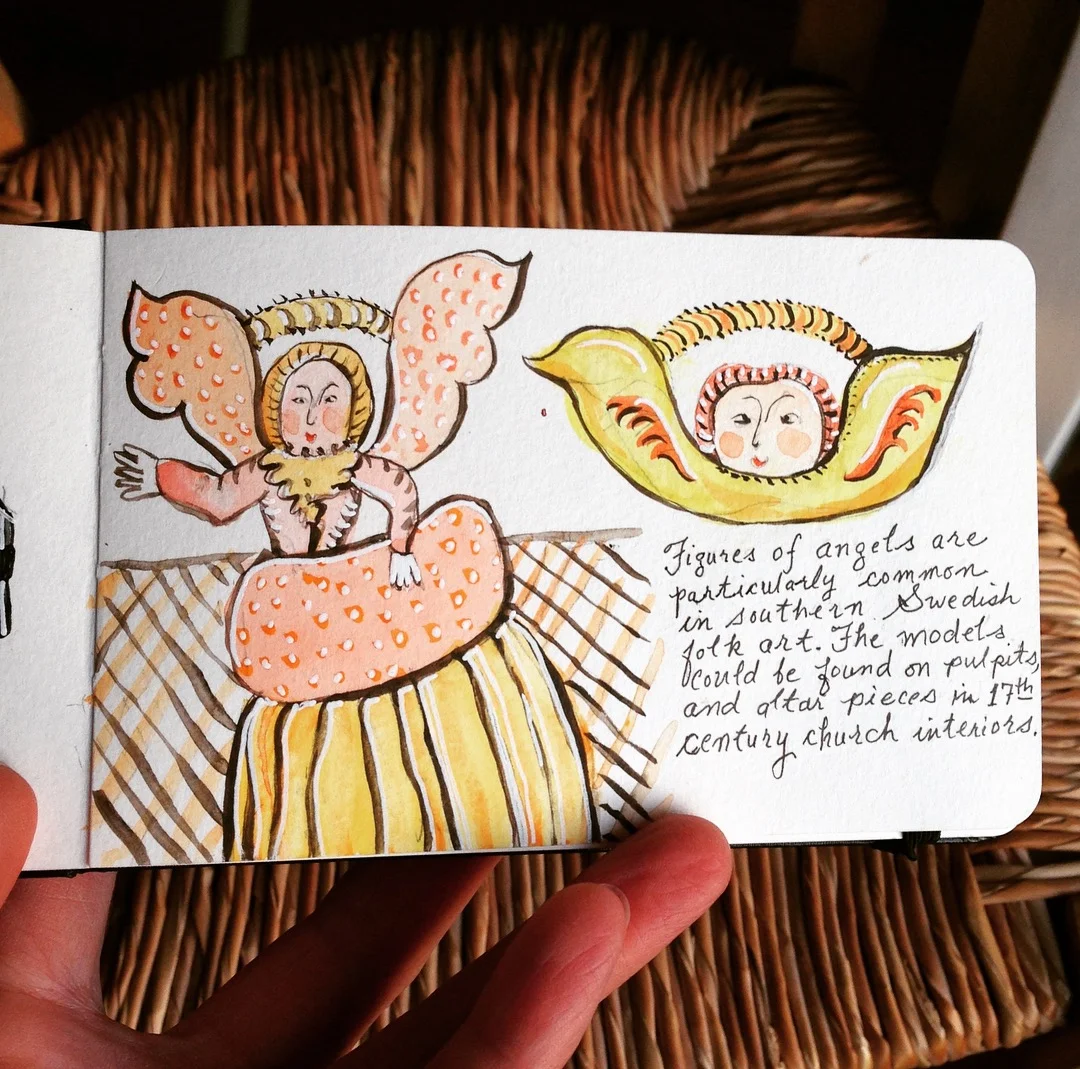 Figures of angels are
particularly common
in southern Swedish
folk art. The models
could be found on pulpits,
and altar pieces in 17th
century church interiors.